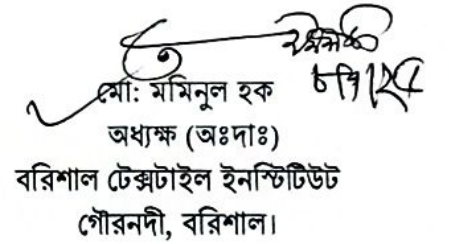 মো: মমিনুল হক
অধ্যক্ষ (অঃদাঃ)
বরিশাল টেক্সটাইল ইনস্টিটিউট
গৌরনদী, বরিশাল।